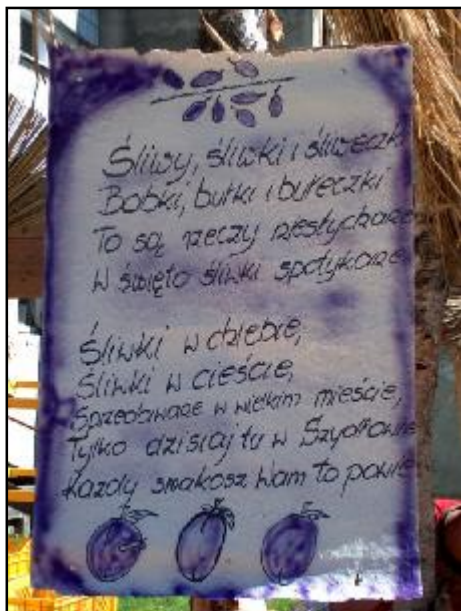 Śliwy, śliwki i śliweczki
Bobki, bułki i bułeczki
To są rzeczy niesłychane
W święto śliwki spotykane
Śliwki w chlebie,
Śliwki w cieście,
Sprzedawane w wielkim mieście,
Tylko dzisiaj tu w Szydłowie
Każdy smakosz Wam to powie